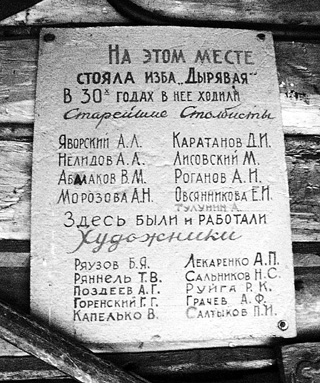 На этом месте
стояла изба „Дырявая“
В 30х годах в нее ходили
Старейшие Столбисты
Яворский А.Л. Каратанов Д.И.
Нелидов А.Л. Лисовский М.
Абмаков В.М. Роганов А.И.
Морозова А.Н. Овсянникова Е.И.
Тулунин А.
Здесь были и работали
Художники
Ряузов Б.Я. Лекаренко А.П.
Ряннель Т.В. Сальников Н.С.
Поздеев А.Г. Руйга Р.К.
Горенский Г.Г. Грачев А.Ф.
Капелько В. Салтыков П.И.